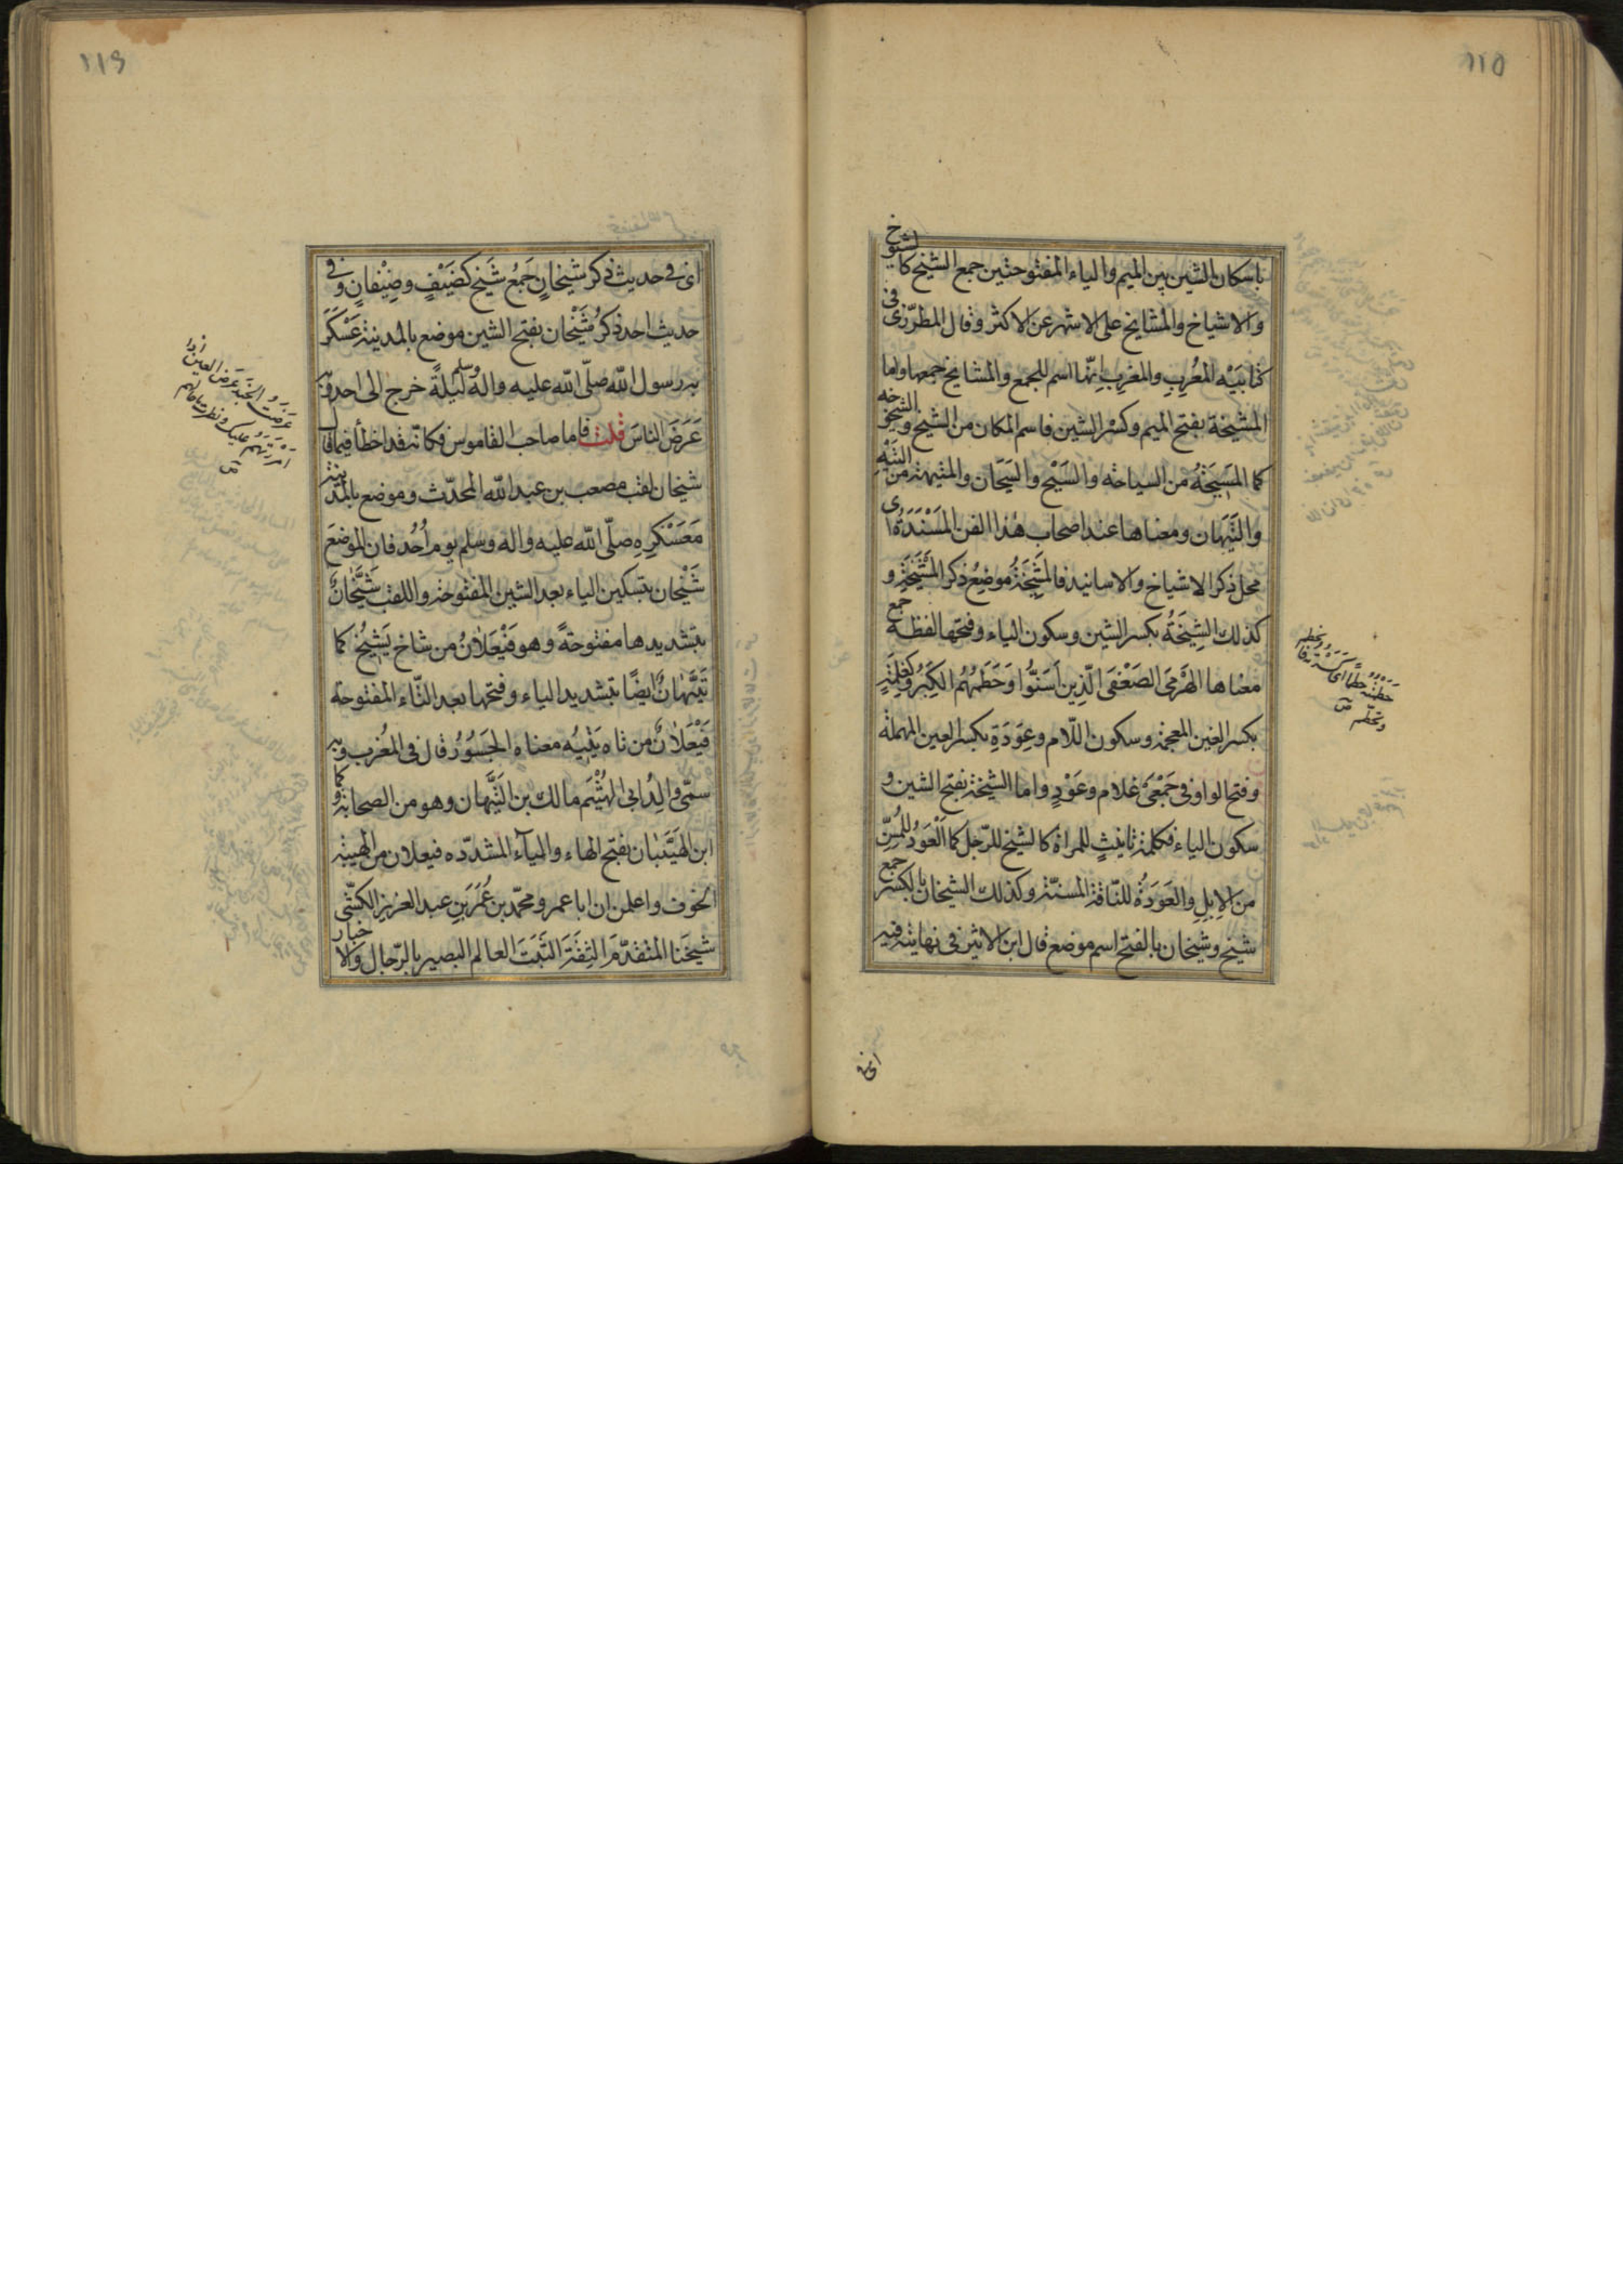 ١١٥
باسكان الشين بين الميم والياء المفتوحتين جمع الشيخ كالشيوخ
والاشياخ والمشايخ على الاشهر عن الاكثر وقال المطرّزى فى
كتابَيْه المُعْرِبِ والمغرِبِ انّها اسم للجمع والمشايخ جمعها واما
المَشيخة بفتح الميم وكسْر الشين فاسم المكان من الشيخ والشيخوخه
كما المَسِيحَةُ من السياحته والسَّيْح والسَّيَحان والمتيهة من التَّيْهِ
والتَّيَهَان ومعناها عند اصحاب هٰذا الفن المَسْنَدَةُ اى
محل ذكر الاشياخ والاسانيد فالمَشِيخَةُ موضِعُ ذكر المَشْيَخَةِ و
كذلك الشِيخَةُ بكسر الشين وسكون الياء وفتحها لفظة جمع
معناها الهَرْمَى الضَعْفَى الّذين اَسَنّوا وَحَطَمَهُم الكِبَرُ وكغِلمَةٍ
بكسر الغين المعجمة وسكون اللّام وعِوَدَةٍ بكسر العين المهملة
وفتح الواو فى جَمْعَىْ غلام وعَوْدٍ واما الشيخة بفتح الشين و
سكون الياء فكلمة تانيثٍ للمراة كالشيخ للرّجل كما العَوْدُ للمُسِنّ
من الاِبِلِ والعَوَدَةُ للنّاقة المسنّة وكذلك الشيخان بالكسر جمع
شيخ وشيخان بالفتح اسم موضع قال ابن الاثير فى نهايته فيه
حَطَمَهُ حَطْمًا اى كَسَرَه فانحطم
وتحطّم ص
١١٦
اى فى حديث ذكر شيخانٍ جَمْعُ شَيخ كضَيْفٍ وضِيْفانٍ وفى
حديث احد ذكرُ شَيْخان بفتح الشين موضع بالمدينة عَسْكَرَ
به رسول الله صلّى الله عليه واله وسلم ليلةً خرج الى احد وبه
عَرَضَ الناسَ قلت فاما صاحب القاموس فكانه قد اخطأ فيما قال
شيخان لقب مصعب بن عبد الله المحدّث وموضع بالمدينة
مَعَسْكَرِهِ صلّى الله عليه واله وسلم يوم اُحُد فان الموضعَ
شَيْخان بتسكين الياء بعد الشين المفتوحة واللقب شَيَّخانٌ
بتشديدها مفتوحةً وهو فَيْعَلانُ من شاخ يَشِيْخُ كما
تَيَّهانٌ ايضًا بتشديد الياء وفتحها بعد التّاء المفتوحة
فَيْعَلانٌ من تاه يَتِيْهُ معناه الجَسُورُ قال فى المُغرب وبه
سمّى والِدُ ابى الهَيْثَم مالك بن التَيَّهان وهو من الصحابة وكما
ابن الهَيَّبَان بفتح الهاء والياء المشدّده فيعلان من الهيبة
الخوف واعلمن ان ابا عمرو محمّد بن عُمَرَ بن عبد العزيز الكشّى
شيخَنا المتقدّمَ الثِقَةَ الثَّبَتَ العالم البصير بالرّجال والاخبار
عَرَضْتُ الجُنْدَ عَرْضَ العين اذا
اَمْرَرْتَهُم عليك ونظرت ما حالهم
ص